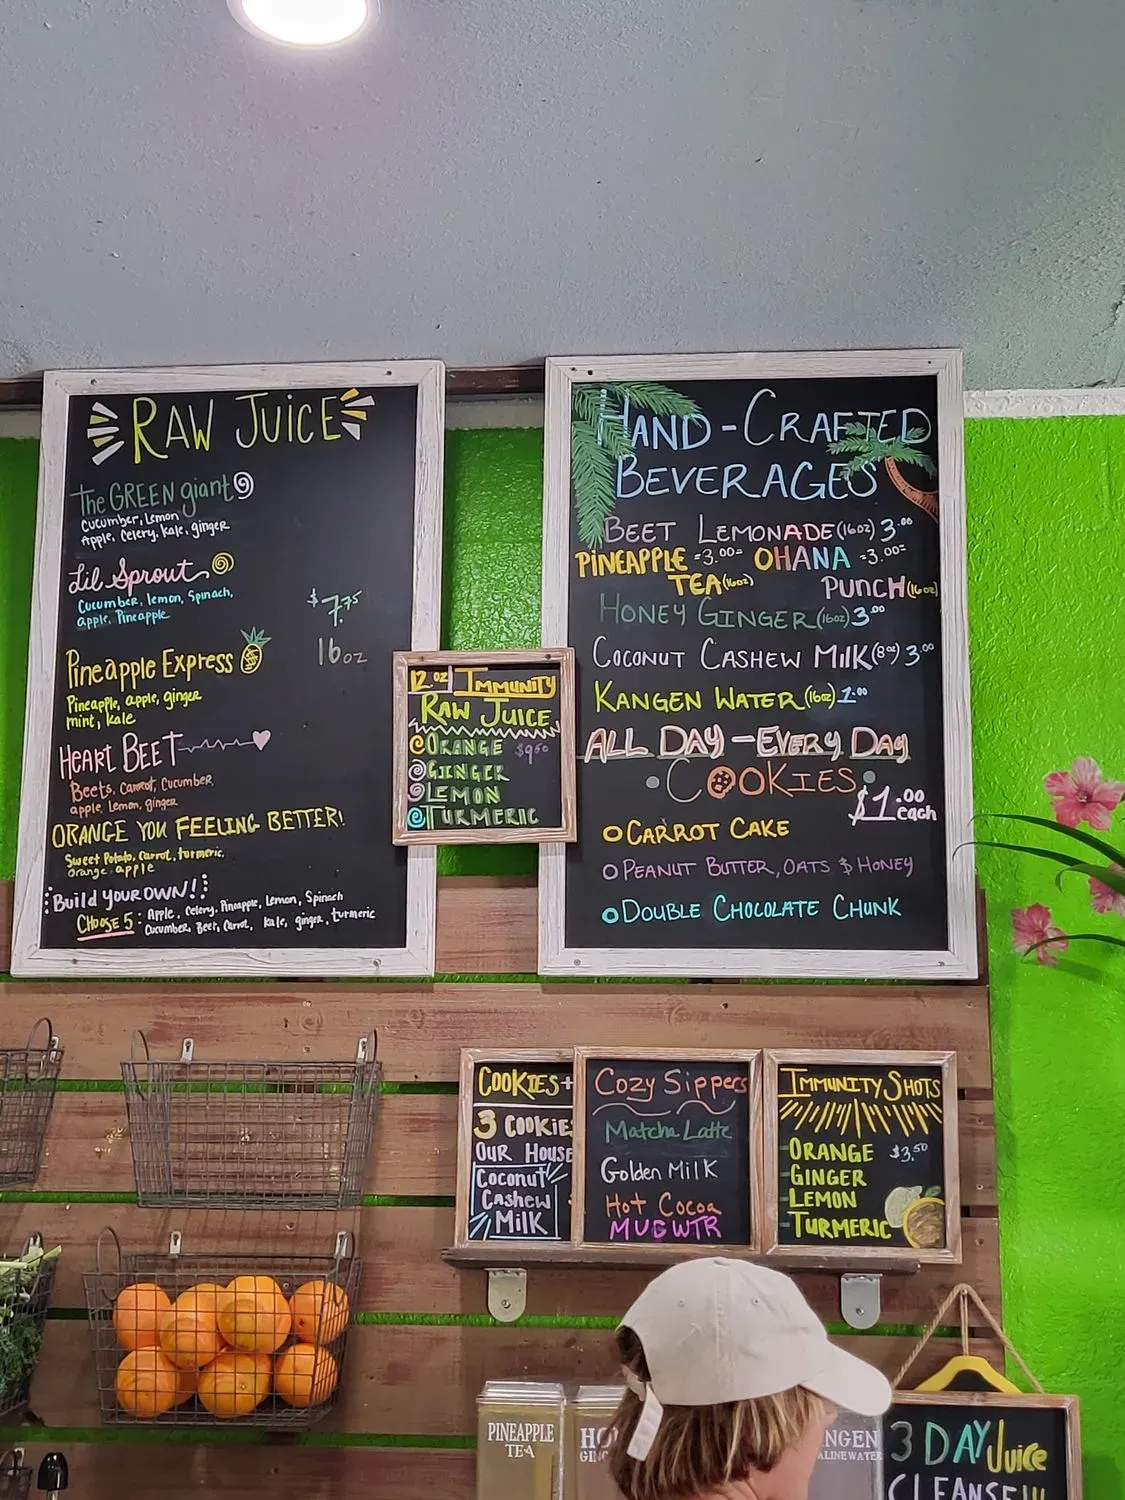 RAW JUICE
The GREEN giant
Cucumber, Lemon
Apple, Celery, Kale, ginger
Lil Sprout
Cucumber, lemon, Spinach,
apple, Pineapple
$7.75
16oz
Pineapple Express
Pineapple, apple, ginger
mint, kale
Heart BEET
Beets, Carrot, Cucumber,
apple, Lemon, ginger
ORANGE YOU FEELING BETTER!
Sweet Potato, carrot, turmeric,
orange, apple
Build your OWN!
CHOOSE 5: Apple, Celery, Pineapple, Lemon, Spinach
Cucumber, Beet, Carrot, kale, ginger, turmeric
12oz IMMUNITY
RAW JUICE
ORANGE $9.50
GINGER
LEMON
TURMERIC
HAND-CRAFTED
BEVERAGES
BEET LEMONADE (16oz) 3.00
PINEAPPLE =3.00= OHANA =3.00=
TEA (16oz) PUNCH (16oz)
HONEY GINGER (16oz) 3.00
COCONUT CASHEW MilK (8oz) 3.00
KANGEN WATER (16oz) 1.00
ALL DAY - EVERY DAY
COOKIES
$1.00 each
CARROT CAKE
PEANUT BUTTER, OATS $ HONEY
DOUBLE CHOCOLATE CHUNK
COOKIES+
3 COOKIE
OUR HOUSE
Coconut
Cashew
MilK
Cozy Sippers
Matcha Latte
Golden MilK
Hot Cocoa
MUGWTR
IMMUNITY SHOTS
ORANGE $3.50
GINGER
LEMON
TURMERIC
PINEAPPLE
TEA
HO
GING
NGEN
ALINE WATER
3 DAY Juice
CLEANSE!!!